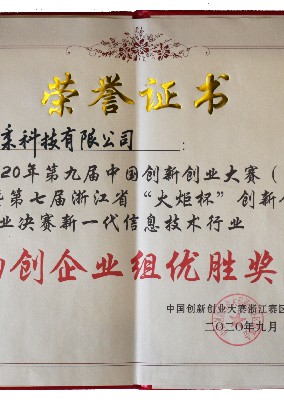 荣誉证书
科技有限公司:
20年第九届中国创新创业大赛(
第七届浙江省“火炬杯”创新
业决赛新一代信息技术行业
创企业组优胜奖
中国创新创业大赛浙江赛区
二〇二〇年九月